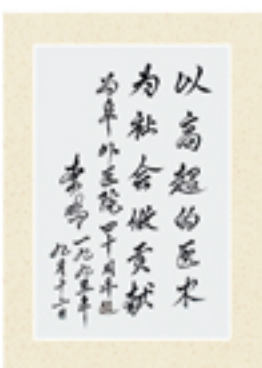 以高超的医术
为社会做贡献
为阜外医院四十周年题
李鹏
一九九 年
九月十 日